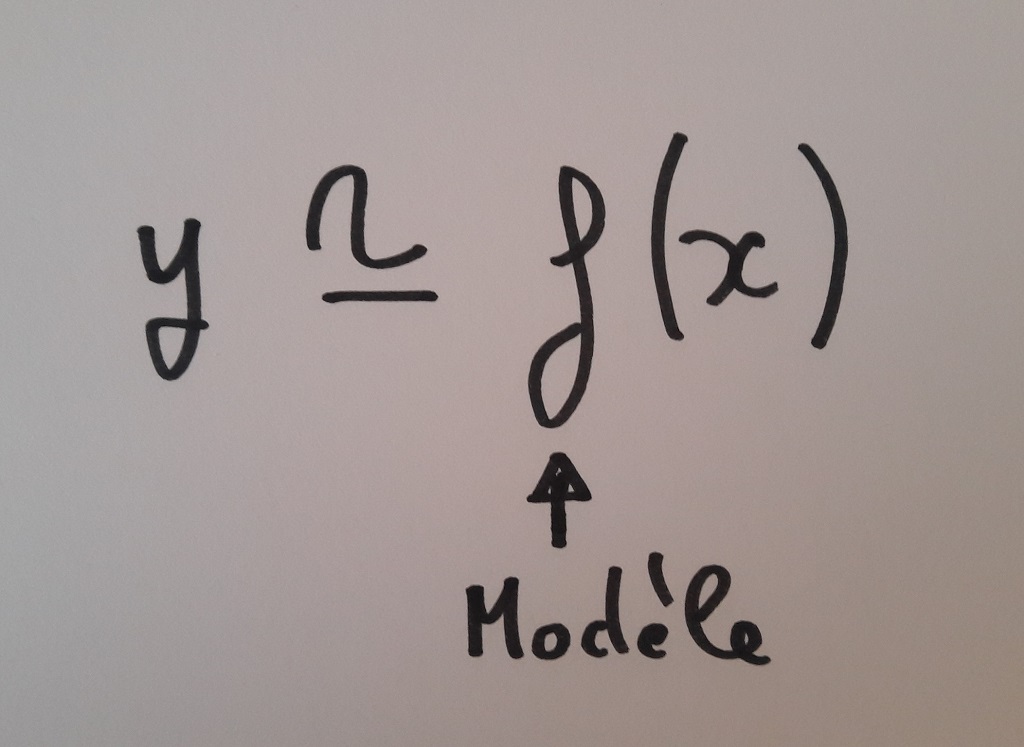 y ≃ f(x)
↑
Modèle